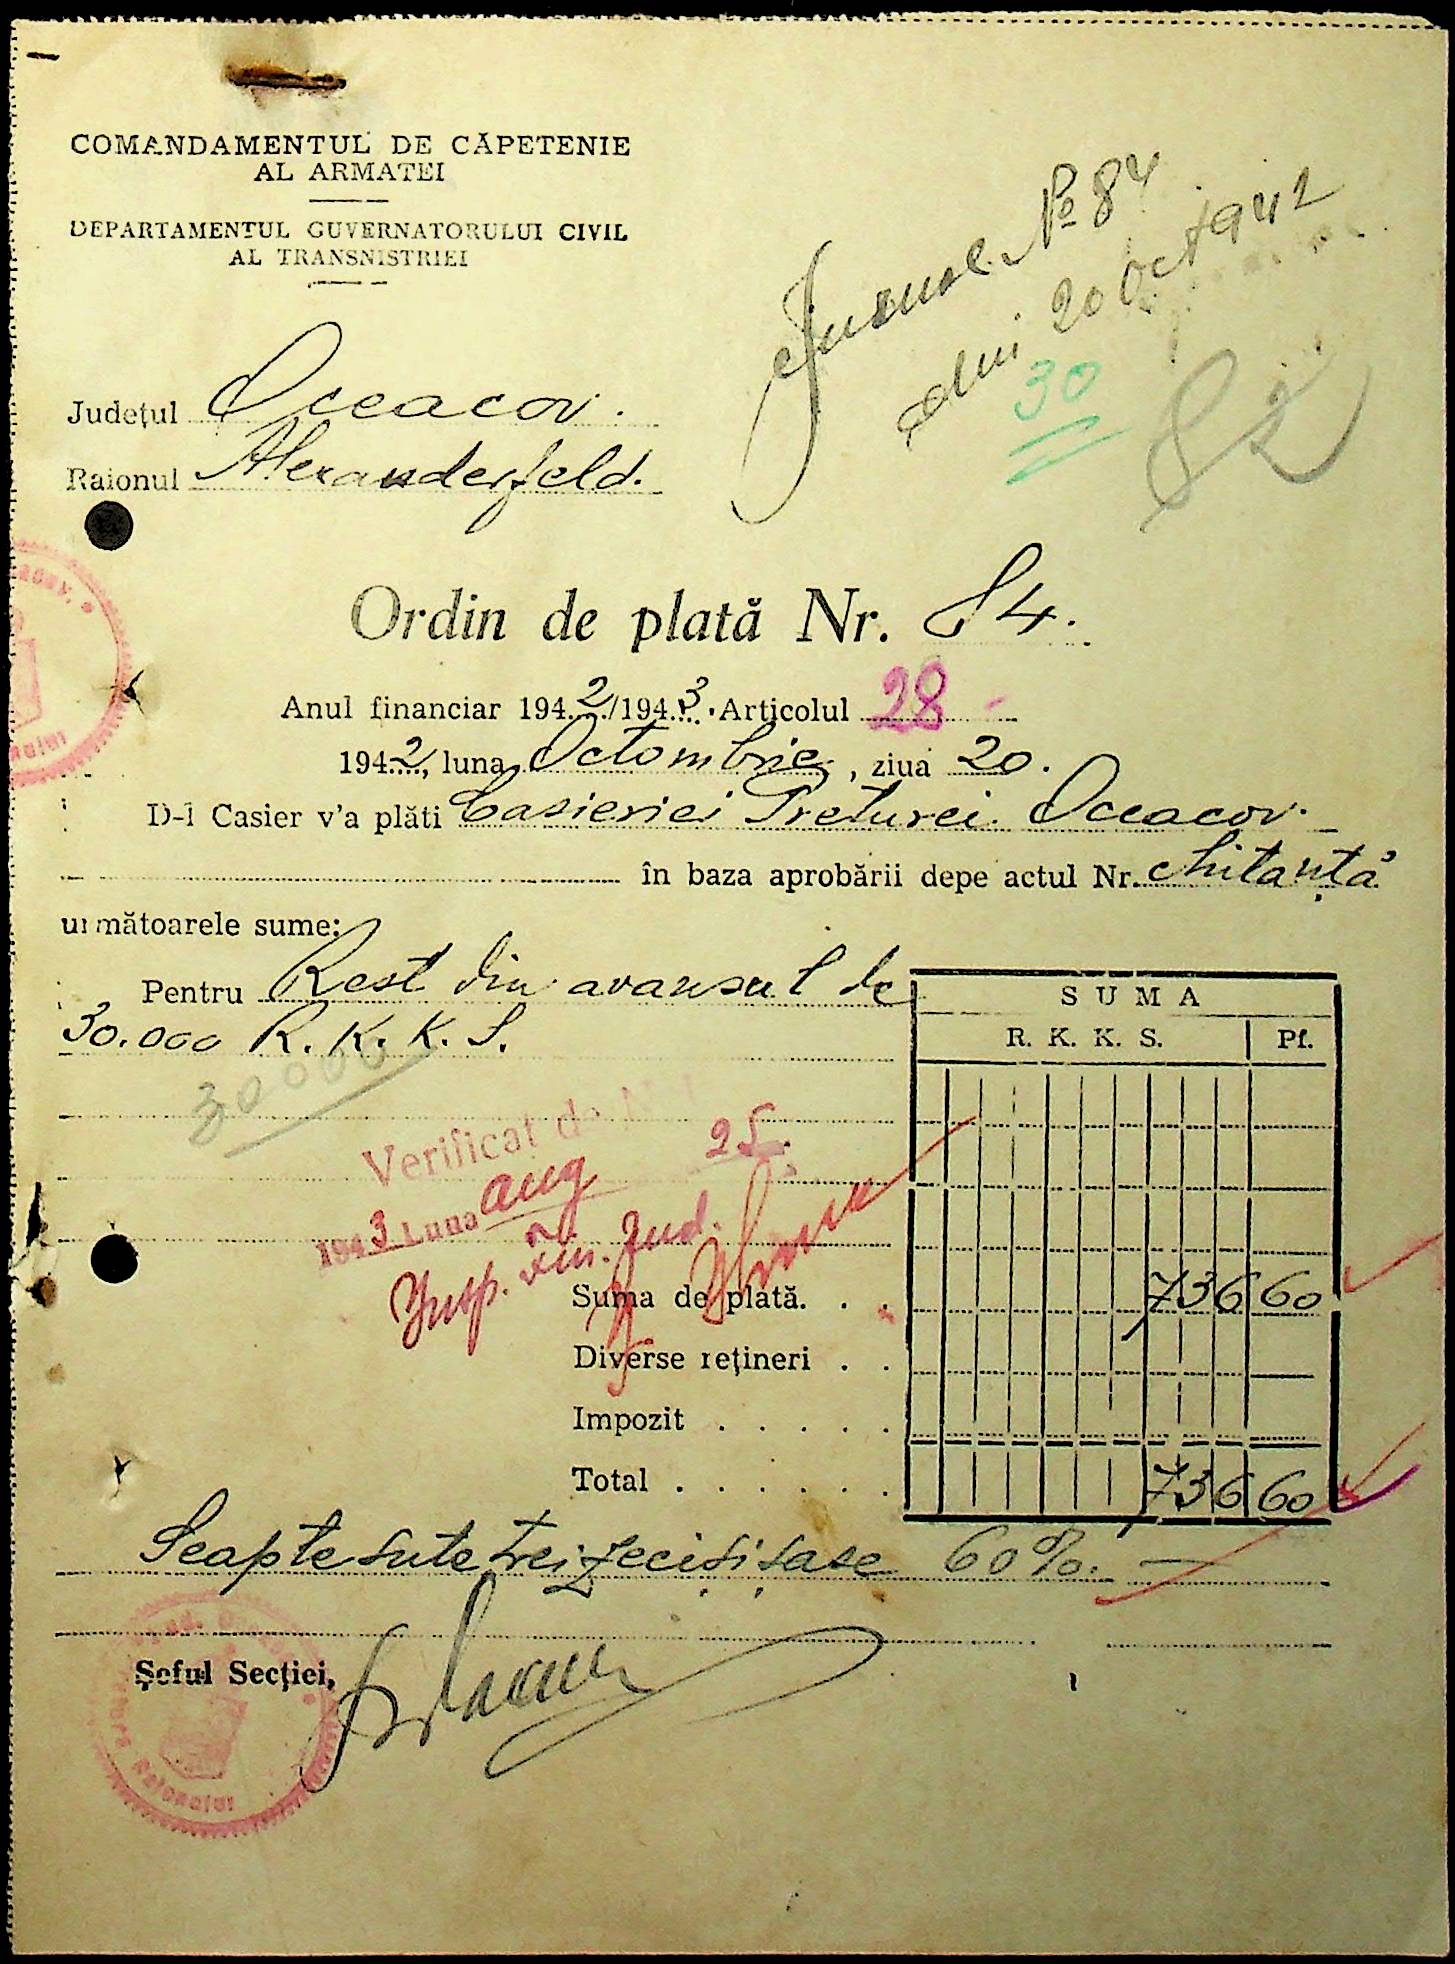 COMANDAMENTUL DE CĂPETENIE
AL ARMATEI
DEPARTAMENTUL GUVERNATORULUI CIVIL
AL TRANSNISTRIEI
Jurnal No 84
din 20 Oct 1942
30
82
Județul Oceacov.
Raionul Alexanderfeld.
Ordin de plată Nr. 84.
Anul financiar 1942/1943. Articolul 28
1942, luna Octombrie, ziua 20.
D-l Casier v'a plăti Casieriei Preturei Oceacov.
în baza aprobării depe actul Nr. chitanță
următoarele sume:
Pentru Rest din avansul de
30.000 R. K. K. S.
30000
SUMA
R. K. K. S. Pf.
Verificat de
25.
1943 Luna aug
Insp. fin. Jud.
Suma de plată. . . 736 60
Diverse rețineri . .
Impozit . . . . .
Total . . . . . . 736 60
Seapte sute treizeci și șase 60%. —
Șeful Secției,
Raionului